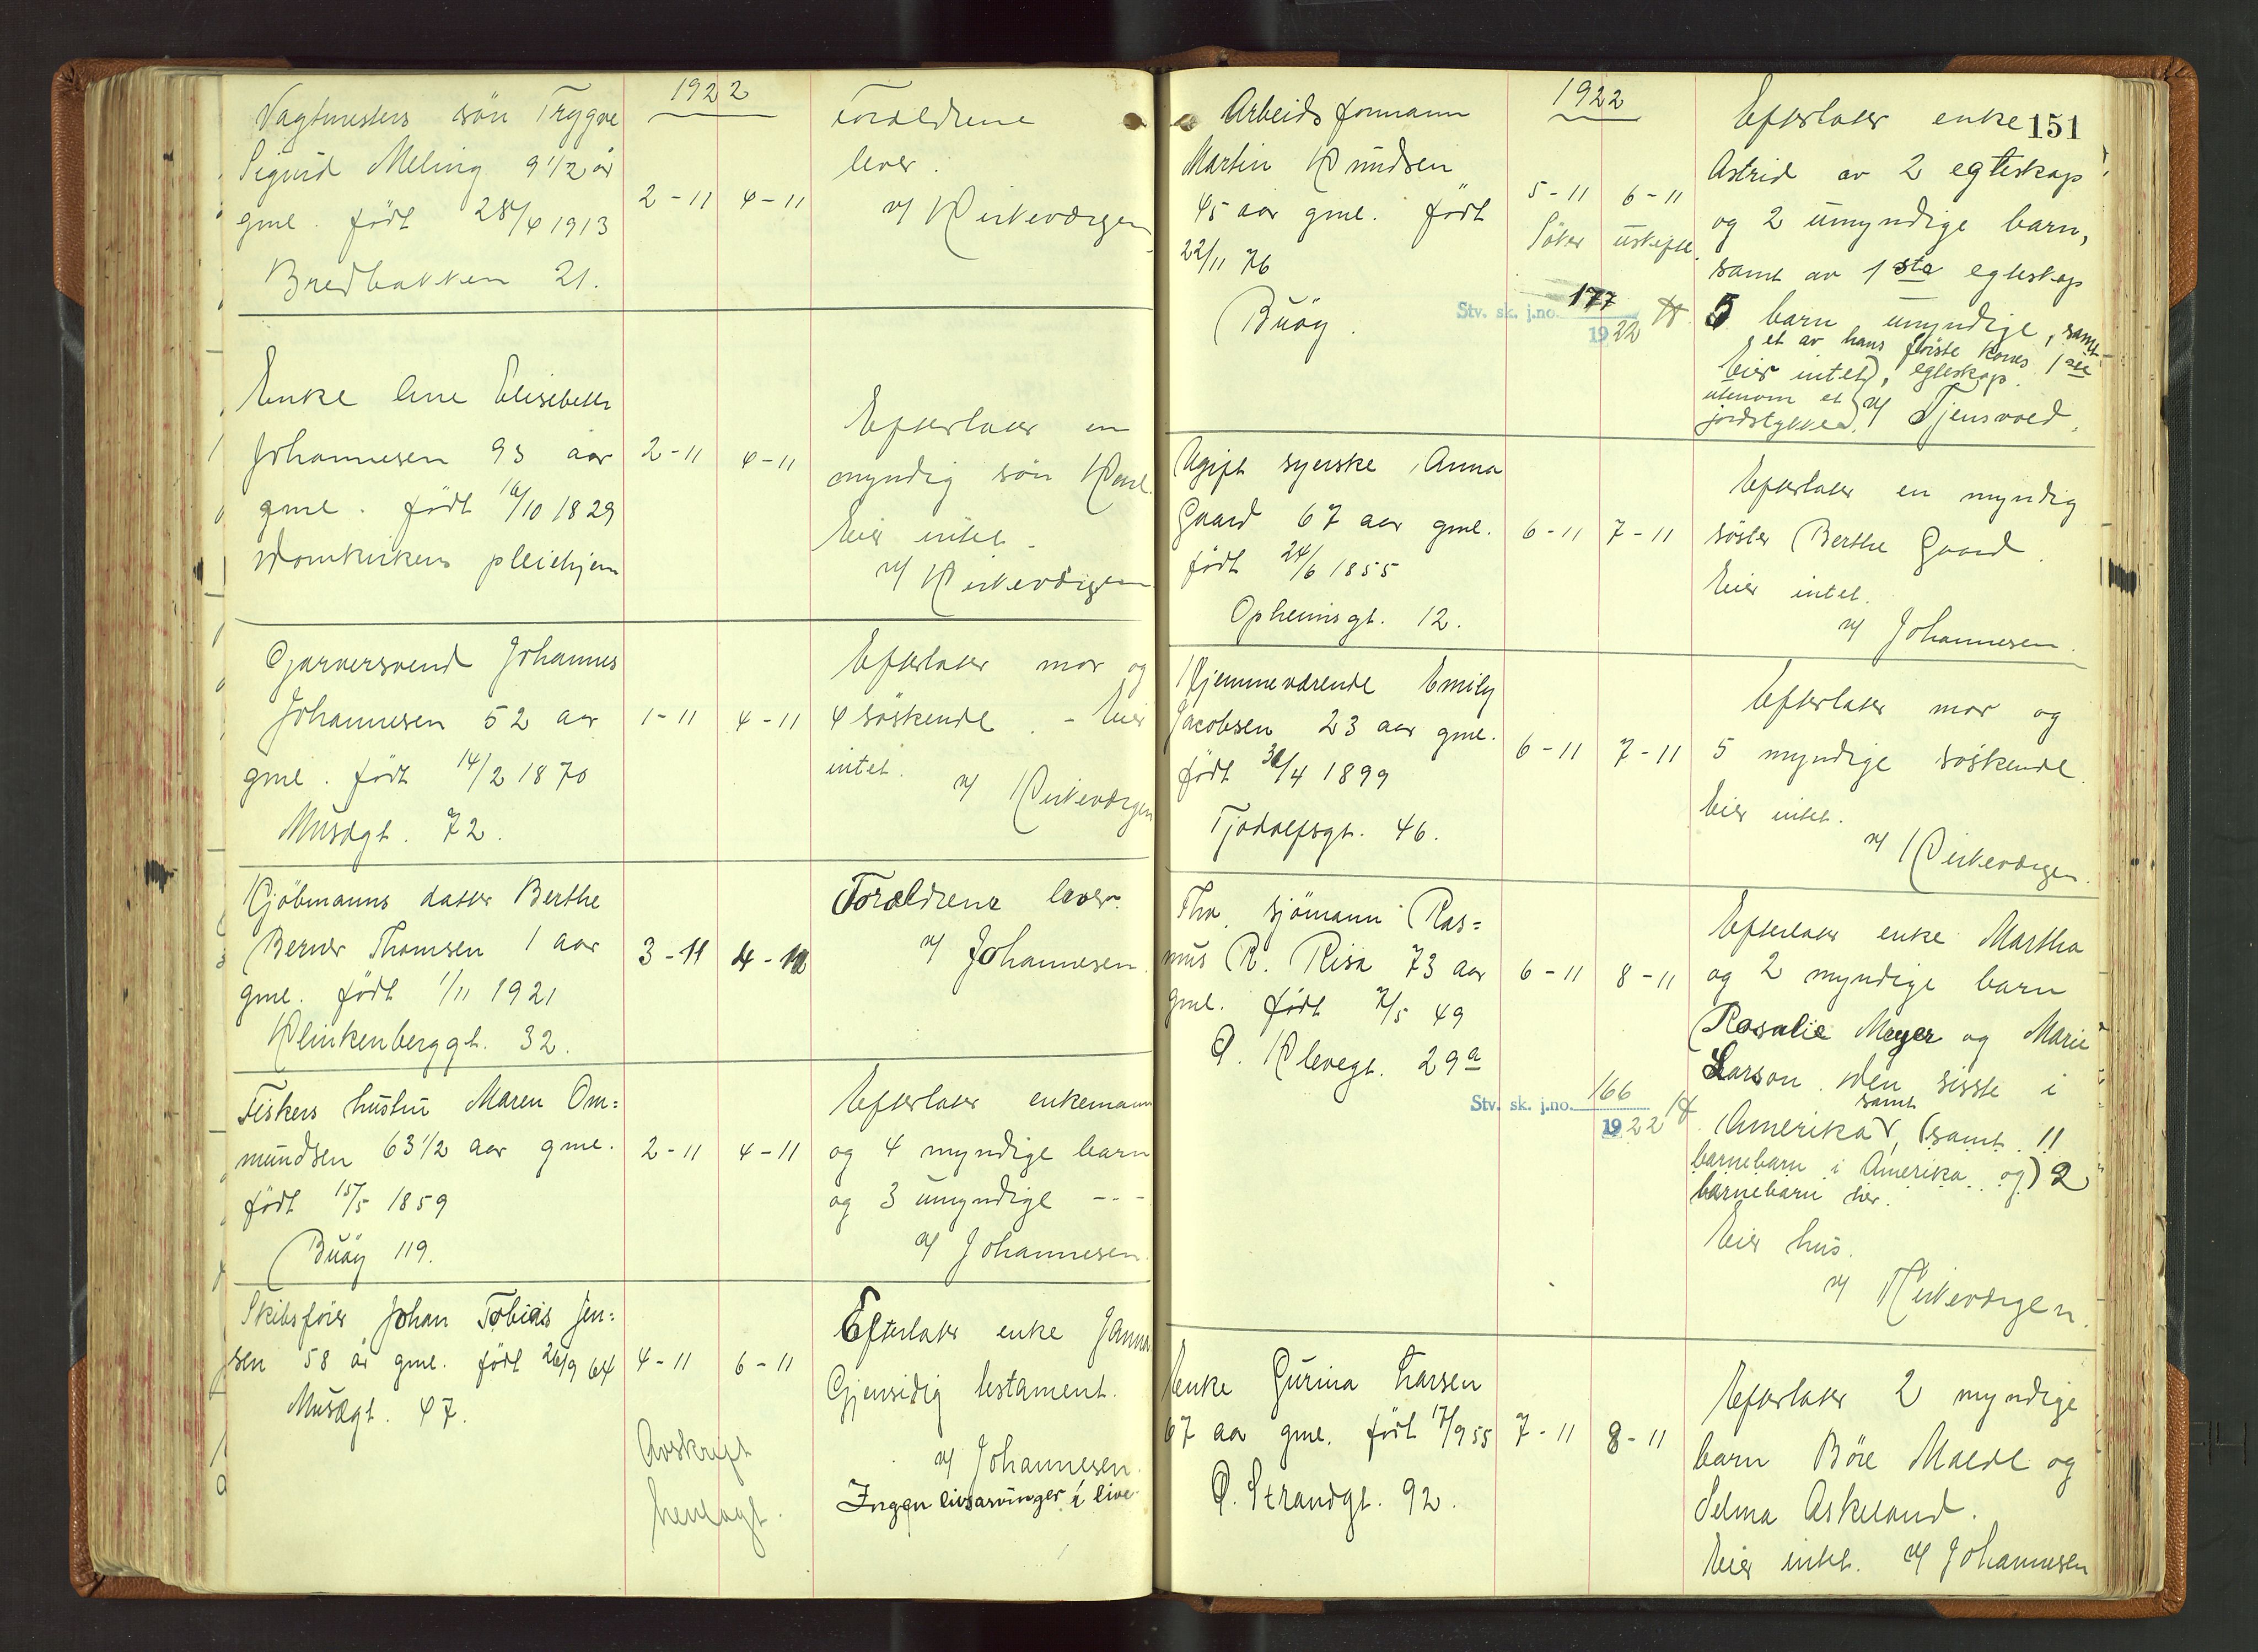 1922
Vagtmesters søn Trygve
Sigurd Meling 9 1/2 år
gml. født 28/4 1913
Bredbakken 21.
2-11 4-11
Forældrene
lever.
v/ Kirkeværgen
Enke Ane Elisebeth
Johannesen 93 aar
gml. født 16/10 1829
Domkirkens pleiehjem
2-11 4-11
Efterlater en
myndig søn Karl.
Eier intet.
v/ Kirkeværgen
Garversvend Johannes
Johannesen 52 aar
gml. født 14/2 1870
Musægt. 72.
1-11 4-11
Efterlater mor og
4 søskende. - Eier
intet.
v/ Kirkeværgen
Kjøbmanns datter Berthe
Berner Thomsen 1 aar
gml. født 1/11 1921
Klinkenberggt. 32.
3-11 4-11
Forældrene lever.
v/ Johannesen.
Fiskers hustru Maren Om=
mundsen 63 1/2 aar gml.
født 15/5 1859
Buøy 119.
2-11 4-11
Efterlater enkemann
og 4 myndige barn
og 3 umyndige - - -
v/ Johannesen.
Skibsfører Johan Tobias Jen=
sen 58 år gml. født 26/9 64
Musægt. 47.
4-11 6-11
Avskrift
henlagt.
Efterlater enke Janna
Gjensidig testament.
v/ Johannesen.
Ingen livsarvinger i live
1922
151
Arbeidsformann
Martin Knudsen
45 aar gml. født
22/11 76
Buøy.
5-11 6-11
Søker uskifte.
Stv. sk. j.no. 177
1922
Efterlater enke
Astrid av 2 egteskap
og 2 umyndige barn,
samt av 1ste egteskap
5 barn umyndige, samt
et av hans første kones 1ste
egteskap.
Eier intet,
utenom et
jordstykke. v/ Tjensvold.
Ugift syerske Anna
Gaard 67 aar gml.
født 24/6 1855
Opheimsgt. 12.
6-11 7-11
Efterlater en myndig
søster Berthe Gaard.
Eier intet.
v/ Johannesen.
Hjemmeværende Emily
Jacobsen 23 aar gml.
født 30/4 1899
Tjodolfsgt. 46.
6-11 7-11
Efterlater mor og
5 myndige søskende.
Eier intet.
v/ Kirkeværgen.
Fhv. sjømann Ras=
mus R. Risa 73 aar
gml. født 7/5 49
Ø. Klevegt. 29a
6-11 8-11
Stv. sk. j.no. 166
1922
Efterlater enke Martha
og 2 myndige barn
Rosalie Meyer og Marie
Larson. den sisste i
samt
Amerika, (samt 11
barnebarn i Amerika og) 2
barnebarn her.
Eier hus.
v/ Kirkeværgen.
Enke Gurina Larsen
67 aar gml. født 17/9 55
Ø. Strandgt. 92.
7-11 8-11
Efterlater 2 myndige
barn Børe Malde og
Selma Askeland.
Eier intet. v/ Johannesen